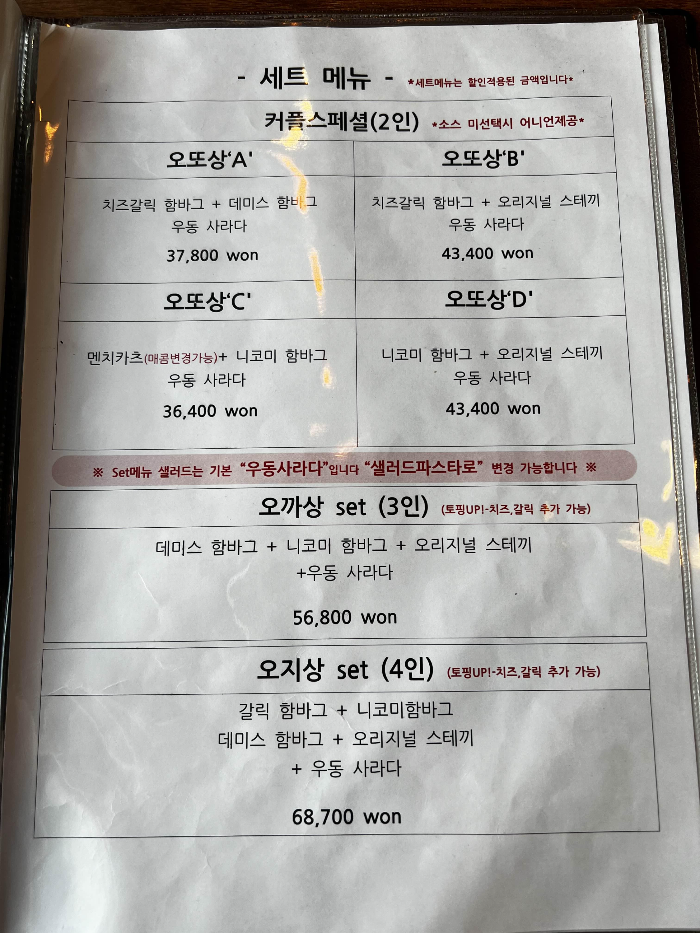 - 세트 메뉴 - *세트메뉴는 할인적용된 금액입니다*
커플스페셜(2인) *소스 미선택시 어니언제공*
오또상‘A'
치즈갈릭 함바그 + 데미스 함바그
우동 사라다
37,800 won
오또상‘B'
치즈갈릭 함바그 + 오리지널 스테끼
우동 사라다
43,400 won
오또상‘C'
멘치카츠(매콤변경가능)+ 니코미 함바그
우동 사라다
36,400 won
오또상‘D'
니코미 함바그 + 오리지널 스테끼
우동 사라다
43,400 won
※ Set메뉴 샐러드는 기본 “우동사라다”입니다 “샐러드파스타로” 변경 가능합니다 ※
오까상 set (3인) (토핑UP!-치즈,갈릭 추가 가능)
데미스 함바그 + 니코미 함바그 + 오리지널 스테끼
+우동 사라다
56,800 won
오지상 set (4인) (토핑UP!-치즈,갈릭 추가 가능)
갈릭 함바그 + 니코미함바그
데미스 함바그 + 오리지널 스테끼
+ 우동 사라다
68,700 won